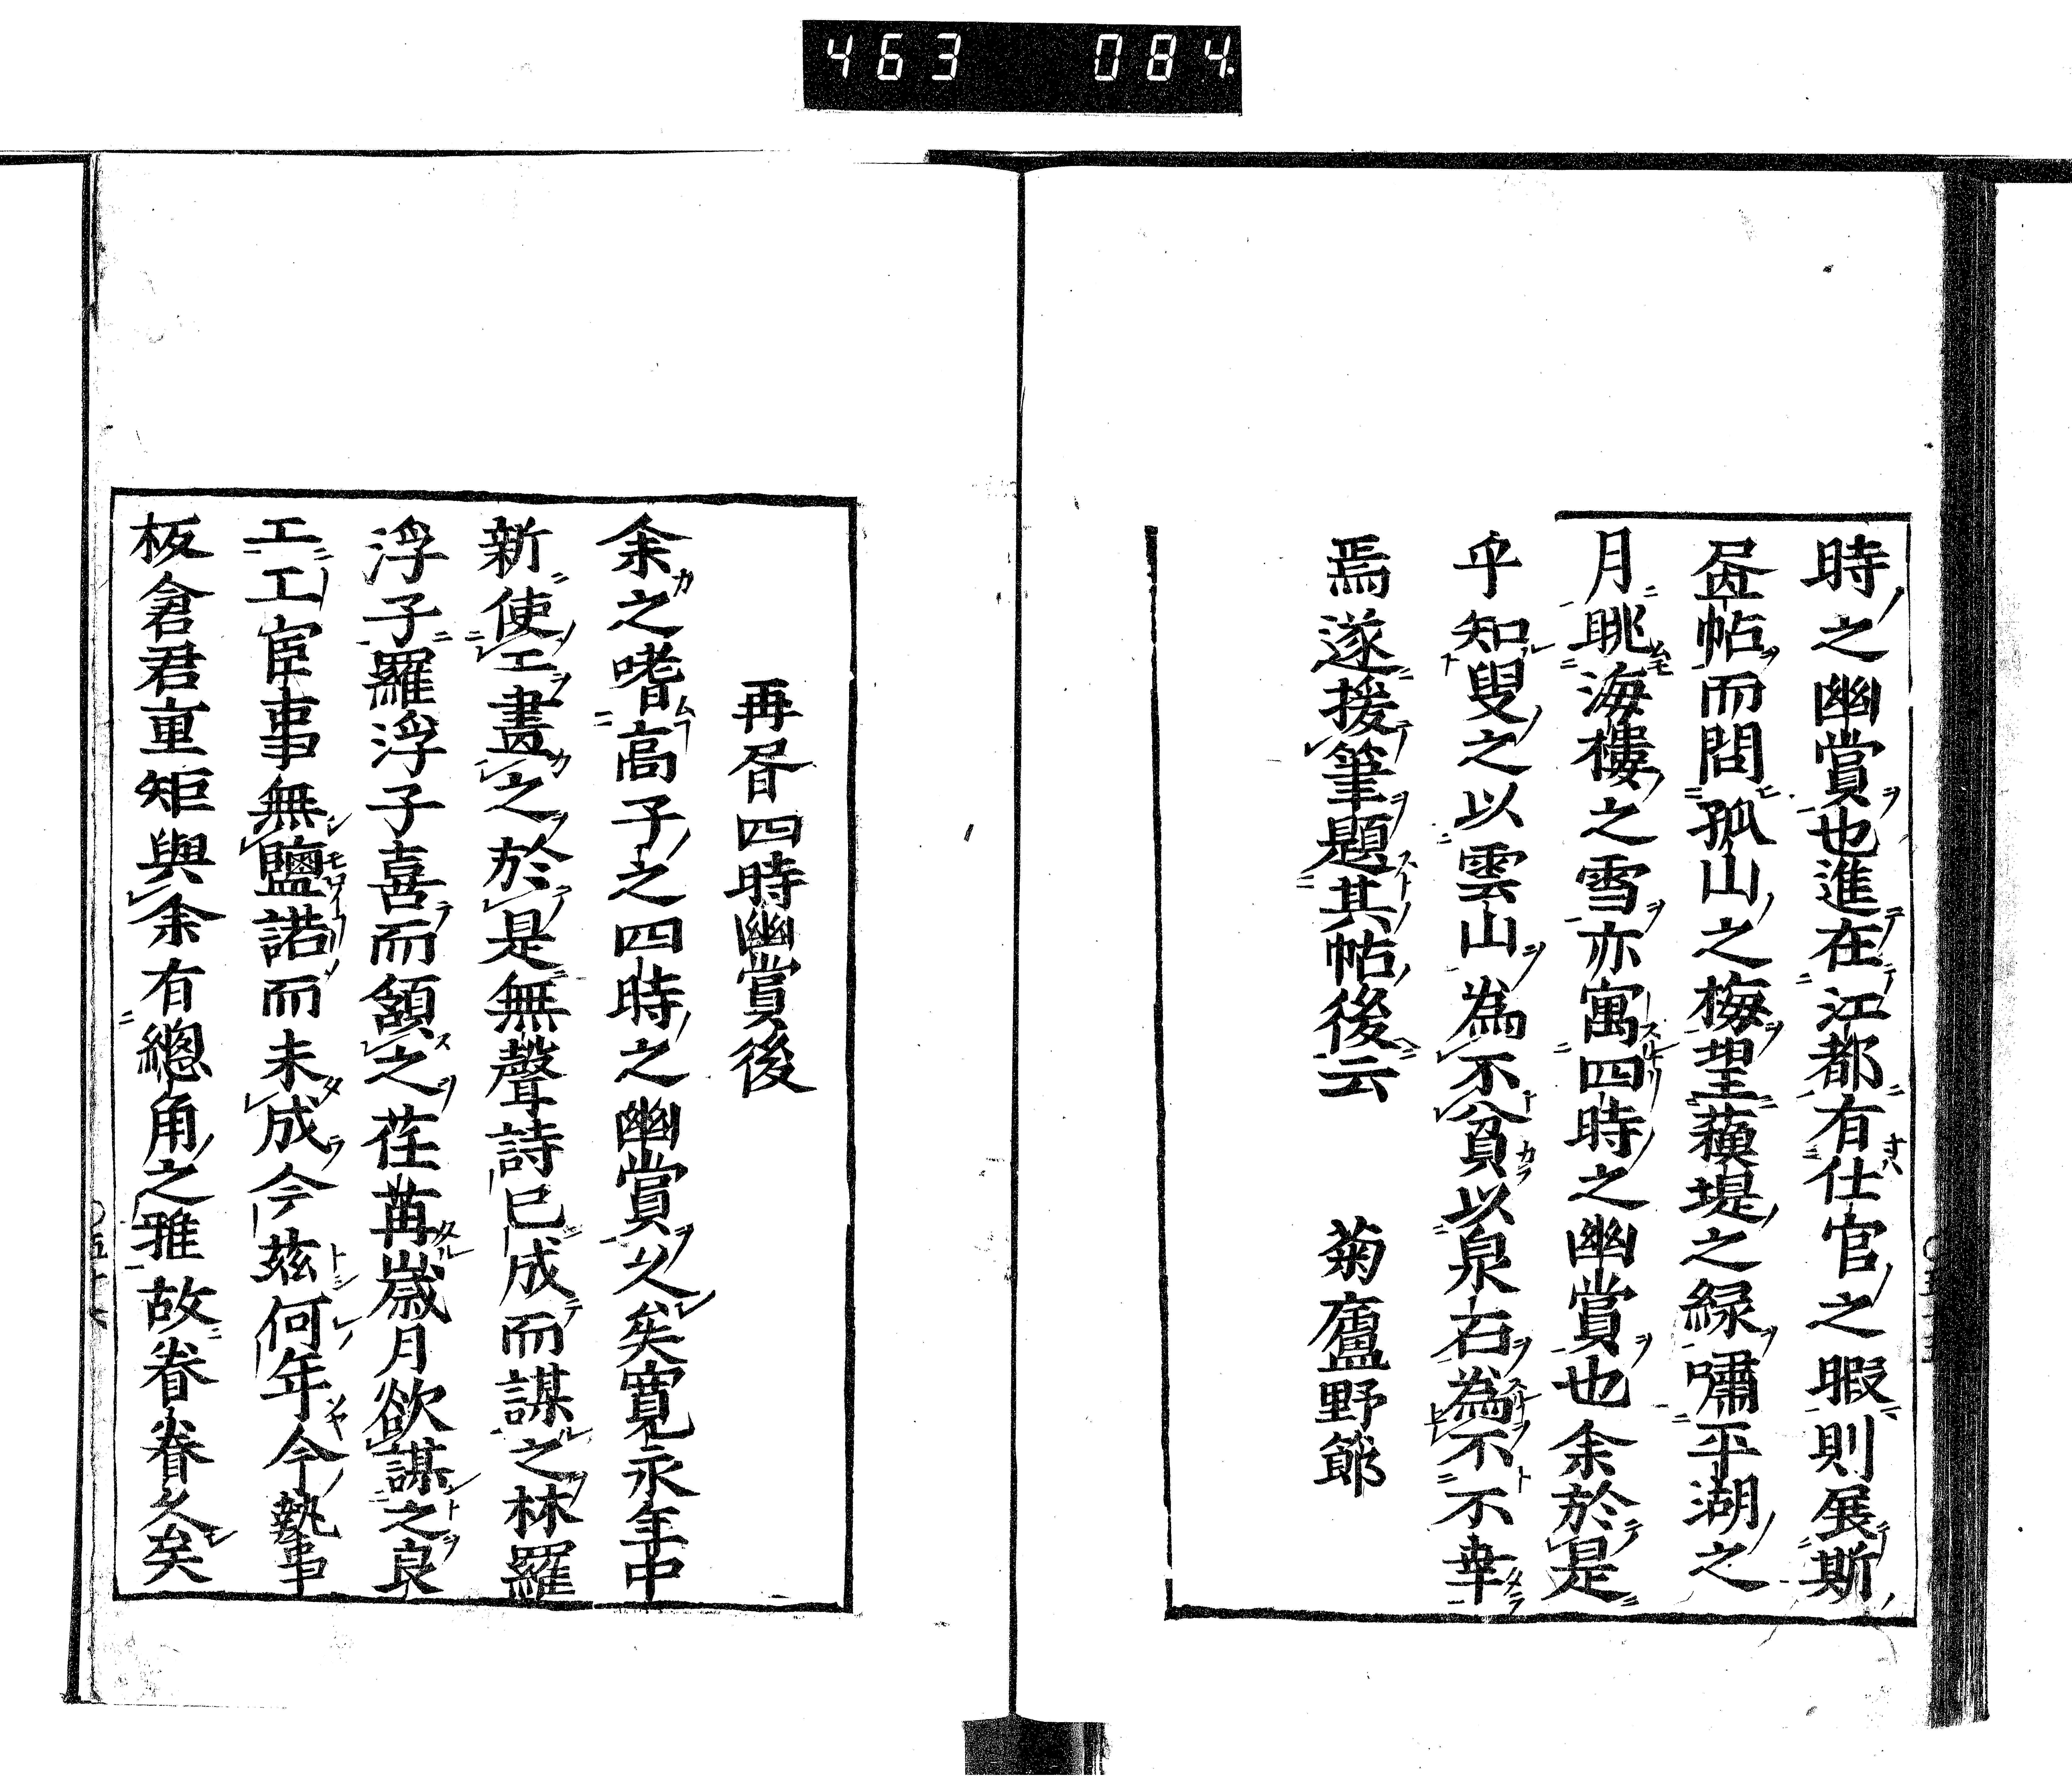 463 084
時之幽賞也進在江都有仕官之暇則展斯
昼帖而問孤山之梅望蘓堤之緑嘯平湖之
月眺海樓之雪亦寓四時之幽賞也余於是
乎知叟之以雲山為不貧以泉石為不不幸
焉遂援筆題其帖後云 菊廬野節
再畧四時幽賞後
余之嗜高子之四時之幽賞久矣寛永年中
新使工畫之於是無聲詩已成而謀之林羅
浮子羅浮子喜而頷之荏苒歳月欲謀之良
工工宦事無鹽諾而未成今茲何年今執事
板倉君重矩與余有總角之雅故眷眷久矣